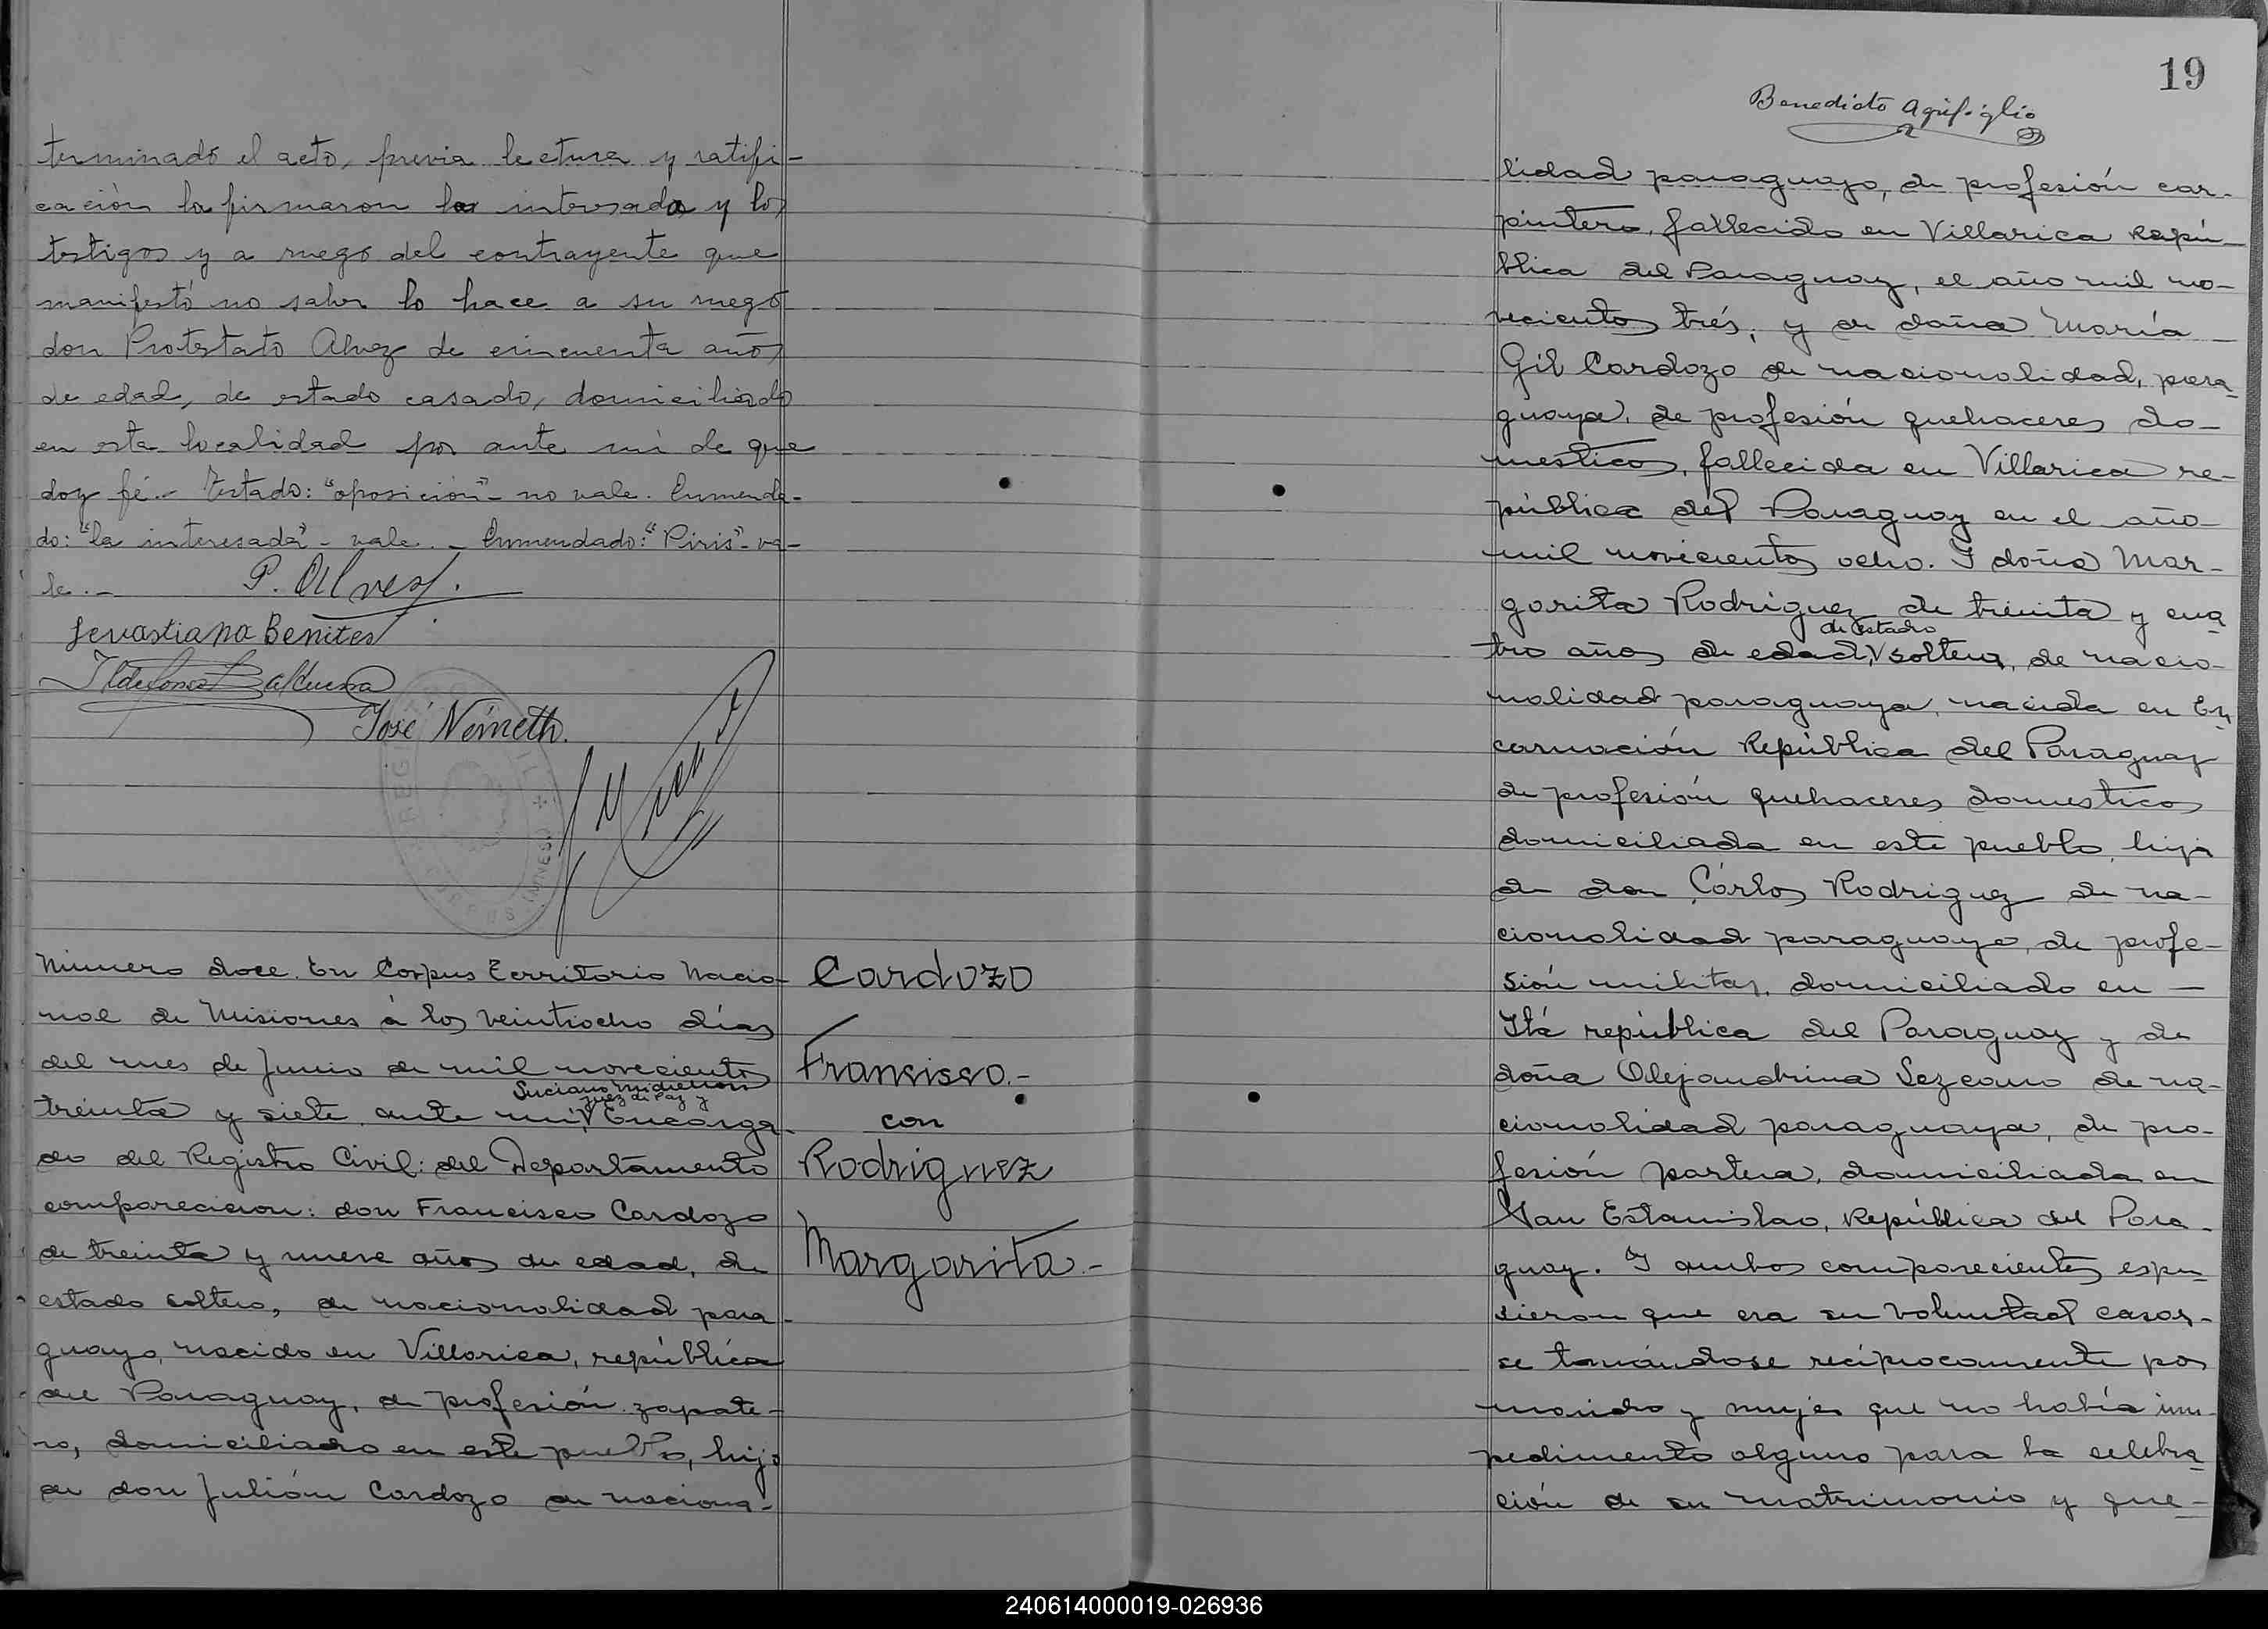 terminado el acto, previa lectura y ratifi-
cación la firmaron la interesada y los
testigos y a ruego del contrayente que
manifestó no saber lo hace a su ruego
don Protestato Alvez de cincuenta años
de edad, de estado casado, domiciliado
en esta localidad por ante mi de que
doy fé.- Testado: "oposición"- no vale. Enmenda-
do: "la interesada"- vale.- Enmendado: "Piris"- va-
le.-
P. Alvez.
Sevastiana Benites
Ildefonso Balbuena
José Németh.
Número doce. En Corpus Territorio Nacio-
nal de Misiones à los veintiocho días
del mes de Junio de mil novecientos
Luciano
Juez de Paz y
treinta y siete ante mi, Encarga-
do del Registro Civil: del Departamento
comparecieron: don Francisco Cardozo
de treinta y nueve años de edad, de
estado soltero, de nacionalidad para-
guayo, nacido en Villarica, república
del Paraguay, de profesión zapate-
ro, domiciliado en este pueblo, hijo
de don Julián Cardozo de naciona-
Cardozo
Fransisco.-
con
Rodriguez
Margarita.-
19
Benedicto Agrifoglio
lidad paraguayo, de profesión car-
pintero, fallecido en Villarica Repú-
blica del Paraguay, el año mil no-
vecientos trés, y de doña María
Gil Cardozo de nacionalidad, para-
guaya, de profesión quehaceres do-
mesticos, fallecida en Villarica re-
pública del Paraguay en el año
mil novecientos ocho. I doña Mar-
garita Rodriguez de treinta y cua-
de estado
tro años de edad, soltera, de nacio-
nalidad paraguaya, nacida en En-
carnación República del Paraguay
de profesión quehaceres domesticos
domiciliada en este pueblo, hija
de don Cárlos Rodriguez de na-
cionalidad paraguayo, de profe-
sión militar, domiciliado en —
Itá república del Paraguay y de
doña Alejandrina Lezcano de na-
cionalidad paraguaya, de pro-
fesión partera, domiciliada en
San Estanislao, República del Para-
guay. I ambos comparecientes espu-
sieron que era su voluntad casar-
se tomándose recíprocamente por
marido y mujer que no había im-
pedimento alguno para la celebra-
ción de su matrimonio y que-
240614000019-026936